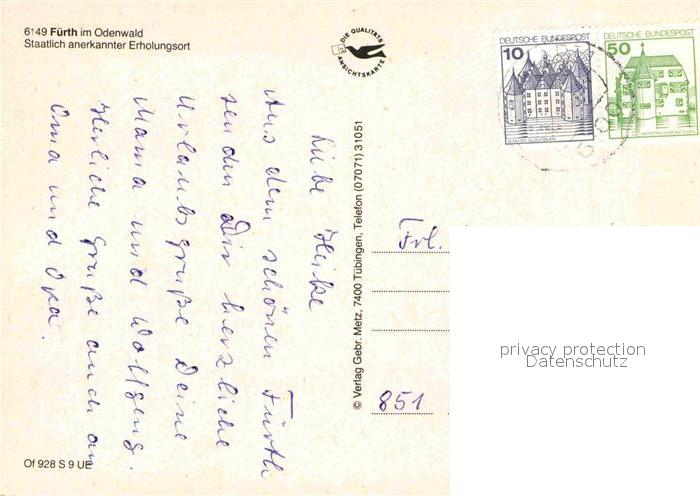 6149 Fürth im Odenwald
Staatlich anerkannter Erholungsort
DIE QUALITÄTS
ANSICHTSKARTE
DEUTSCHE BUNDESPOST
10
DEUTSCHE BUNDESPOST
50
Liebe Heike
Aus dem schönen Fürth
senden Dir herzliche
Urlaubsgrüße Deine
Mama und Wolfgang.
Herzliche Grüße auch an
Oma und Opa.
© Verlag Gebr. Metz, 7400 Tübingen, Telefon (07071) 31051
Frl.
851
privacy protection
Datenschutz
Of 928 S 9 UE